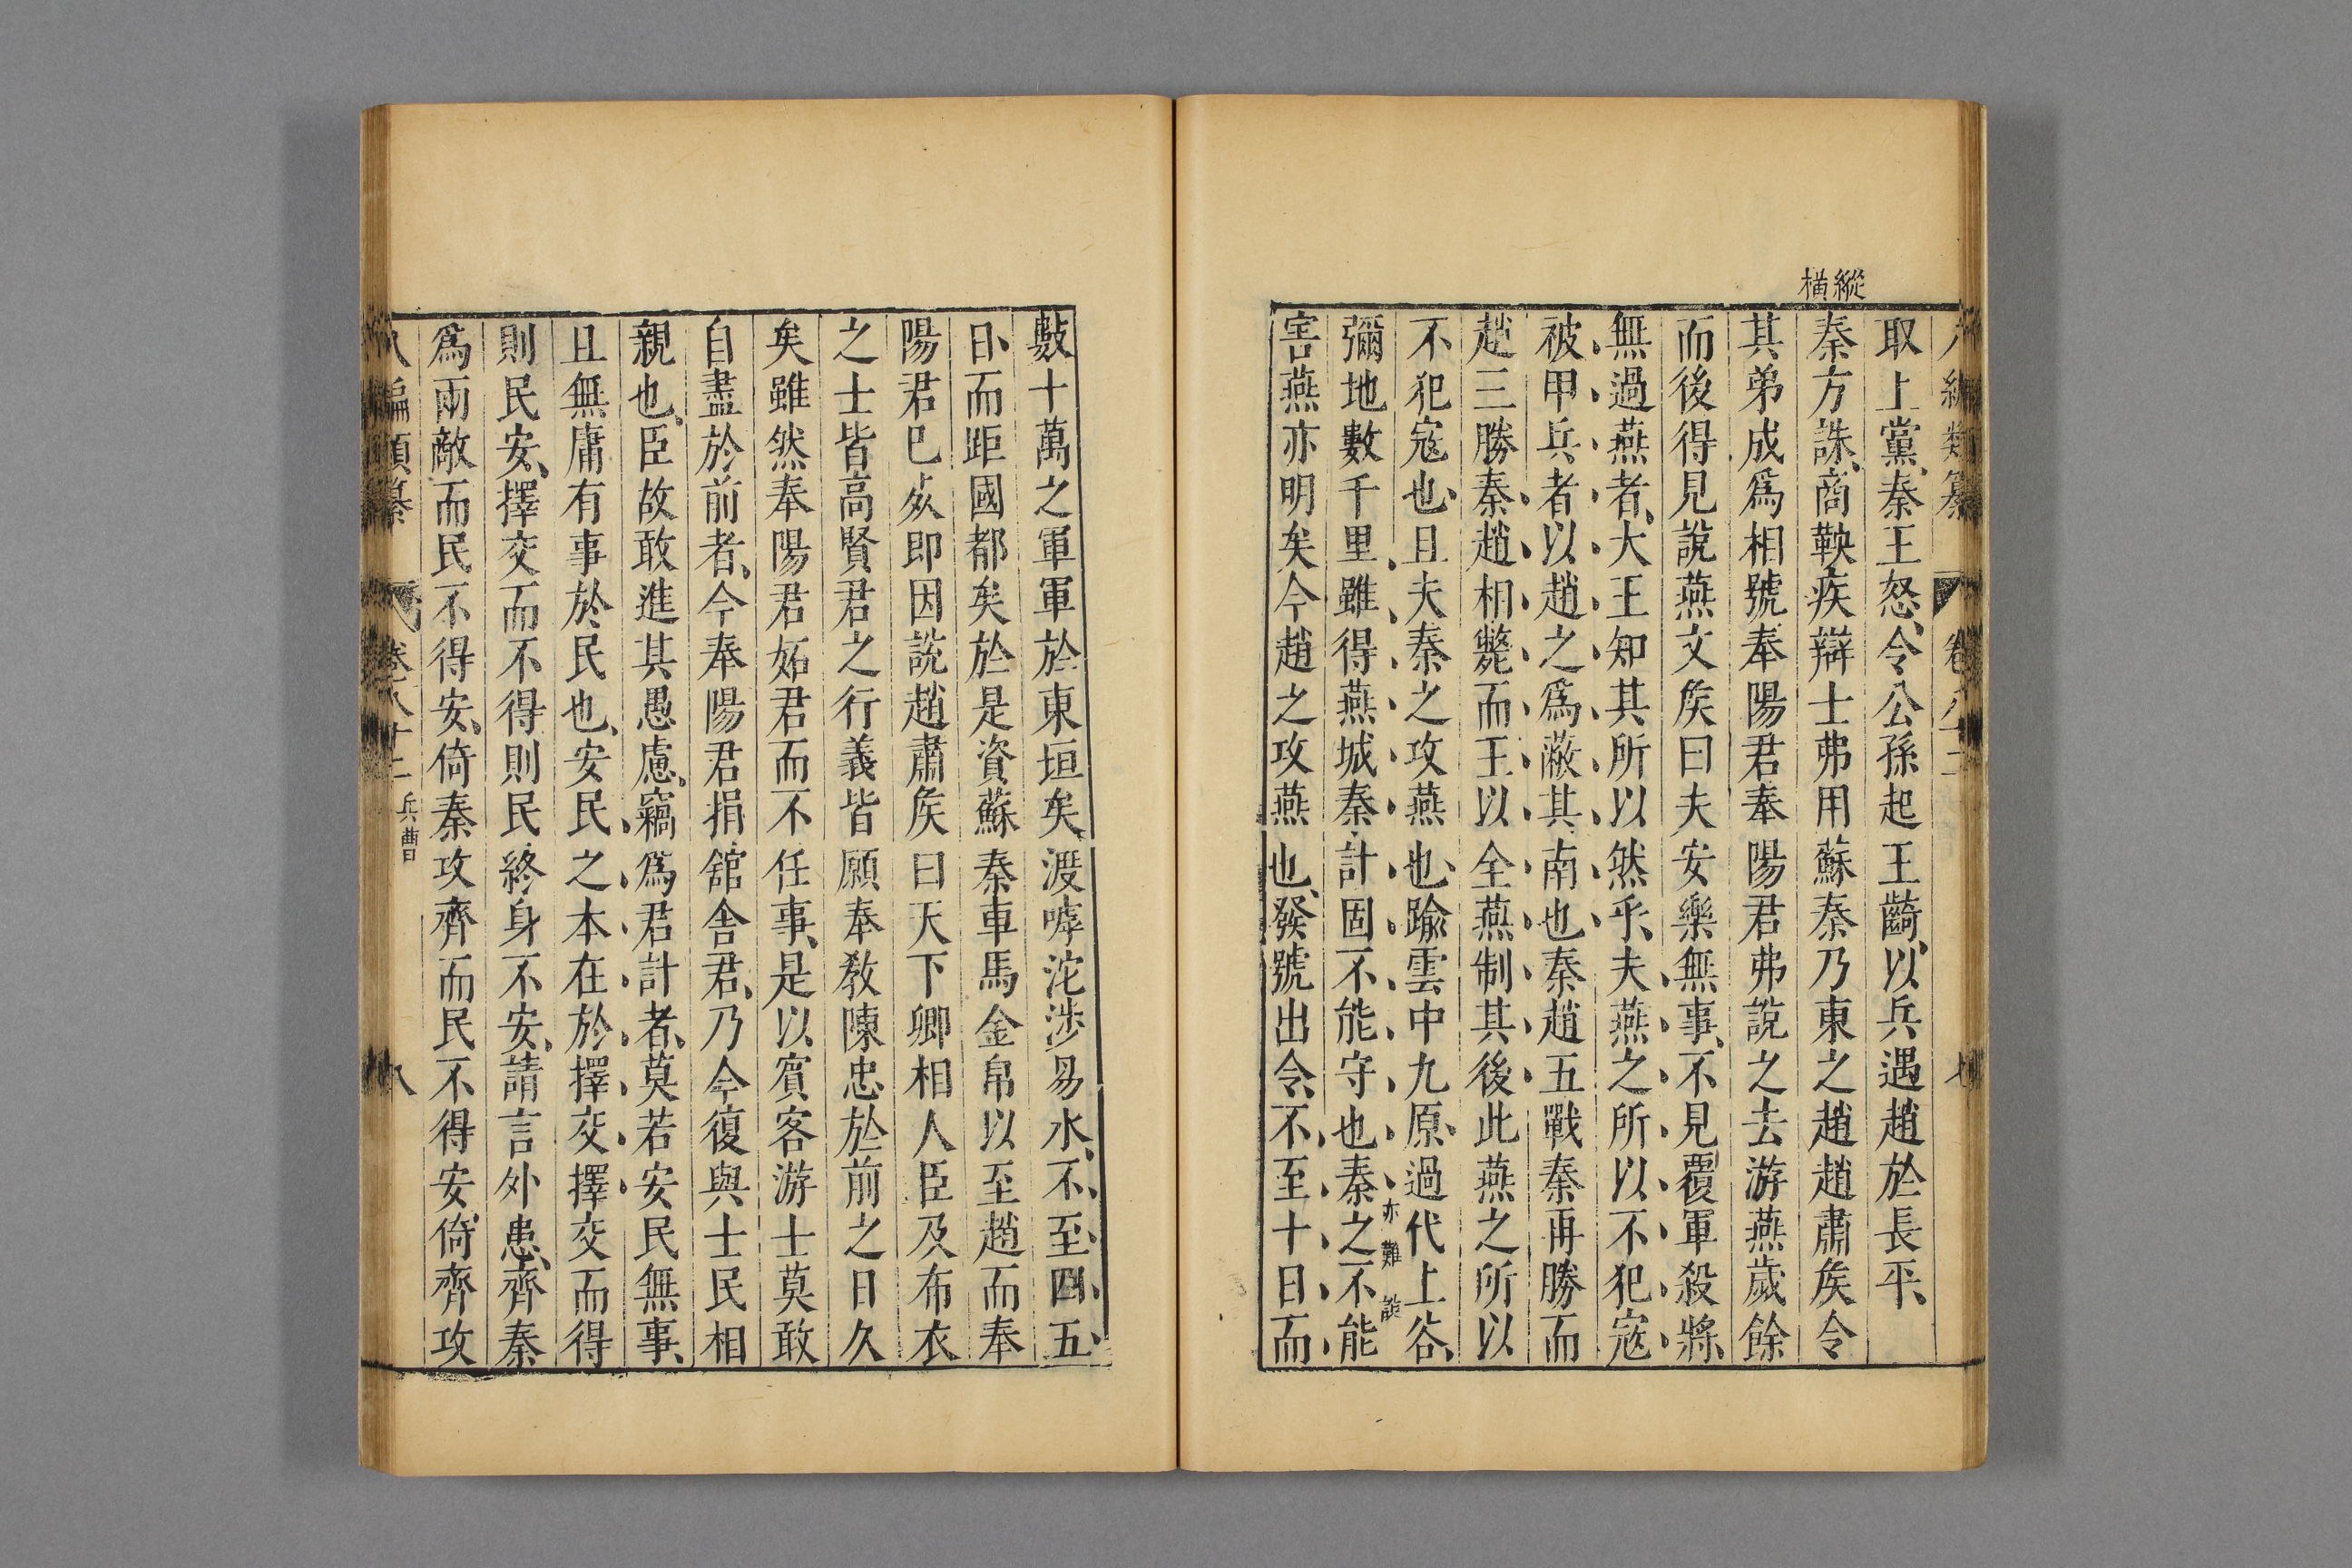 縱橫
八編類纂 卷八十二 七
取上黨秦王怒令公孫起王齮以兵遇趙於長平
秦方誅商鞅疾辯士弗用蘇秦乃東之趙趙肅矦令
其弟成爲相號奉陽君奉陽君弗說之去游燕歲餘
而後得見說燕文矦曰夫安樂無事不見覆軍殺將
無過燕者大王知其所以然乎夫燕之所以不犯寇
被甲兵者以趙之爲蔽其南也秦趙五戰秦再勝而
趙三勝秦趙相斃而王以全燕制其後此燕之所以
不犯寇也且夫秦之攻燕也踰雲中九原過代上谷
彌地數千里雖得燕城秦計固不能守也秦之不能
亦難說
害燕亦明矣今趙之攻燕也發號出令不至十日而
數十萬之軍軍於東垣矣渡嘑沱涉易水不至四五
日而距國都矣於是資蘇秦車馬金帛以至趙而奉
陽君已歿即因說趙肅矦曰天下卿相人臣及布衣
之士皆高賢君之行義皆願奉教陳忠於前之日久
矣雖然奉陽君妬君而不任事是以賓客游士莫敢
自盡於前者今奉陽君捐舘舍君乃今復與士民相
親也臣故敢進其愚慮竊爲君計者莫若安民無事
且無庸有事於民也安民之本在於擇交擇交而得
則民安擇交而不得則民終身不安請言外患齊秦
爲兩敵而民不得安倚秦攻齊而民不得安倚齊攻
八編類纂 卷八十二 兵曹 八